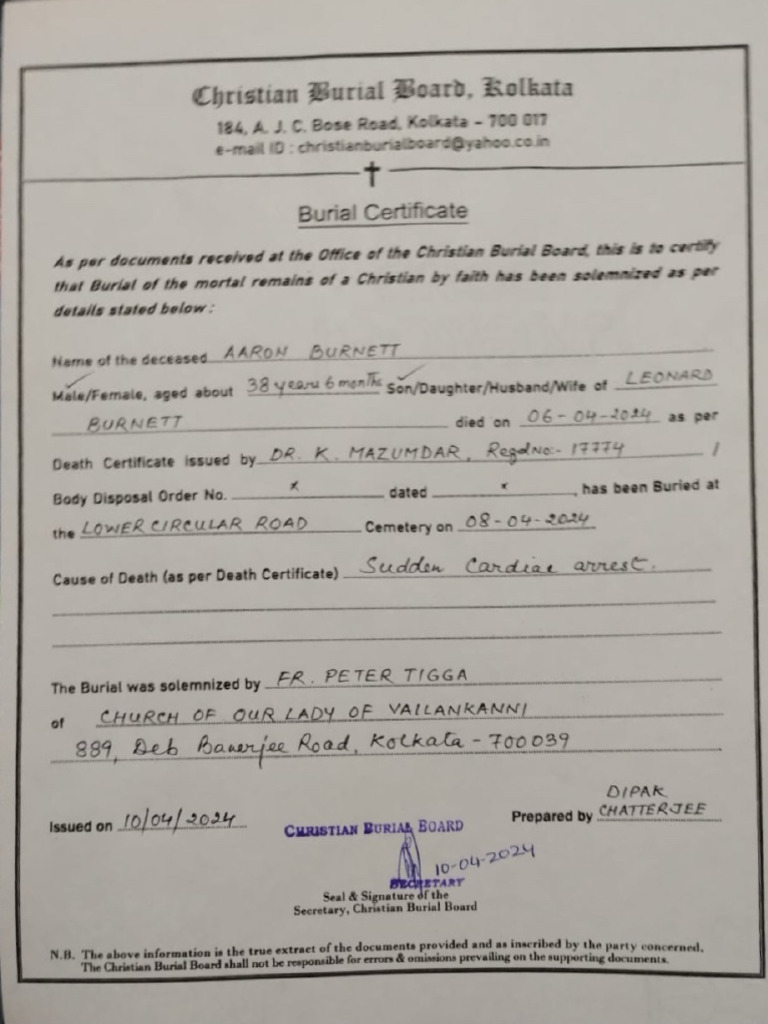 Christian Burial Board, Kolkata
184, A. J. C. Bose Road, Kolkata - 700 017
e-mail ID : christianburialboard@yahoo.co.in
Burial Certificate
As per documents received at the Office of the Christian Burial Board, this is to certify
that Burial of the mortal remains of a Christian by faith has been solemnized as per
details stated below :
Name of the deceased AARON BURNETT
Male/Female, aged about 38 years 6 months Son/Daughter/Husband/Wife of LEONARD
BURNETT died on 06-04-2024 as per
Death Certificate issued by DR. K. MAZUMDAR, Regd No:- 17774 /
Body Disposal Order No. x dated x, has been Buried at
the LOWER CIRCULAR ROAD Cemetery on 08-04-2024
Cause of Death (as per Death Certificate) Sudden Cardiac arrest.
The Burial was solemnized by FR. PETER TIGGA
of CHURCH OF OUR LADY OF VAILANKANNI
889, Deb Banerjee Road, Kolkata - 700039
Issued on 10/04/2024
Prepared by DIPAK CHATTERJEE
CHRISTIAN BURIAL BOARD
10-04-2024
SECRETARY
Seal & Signature of the
Secretary, Christian Burial Board
N.B. The above information is the true extract of the documents provided and as inscribed by the party concerned.
The Christian Burial Board shall not be responsible for errors & omissions prevailing on the supporting documents.